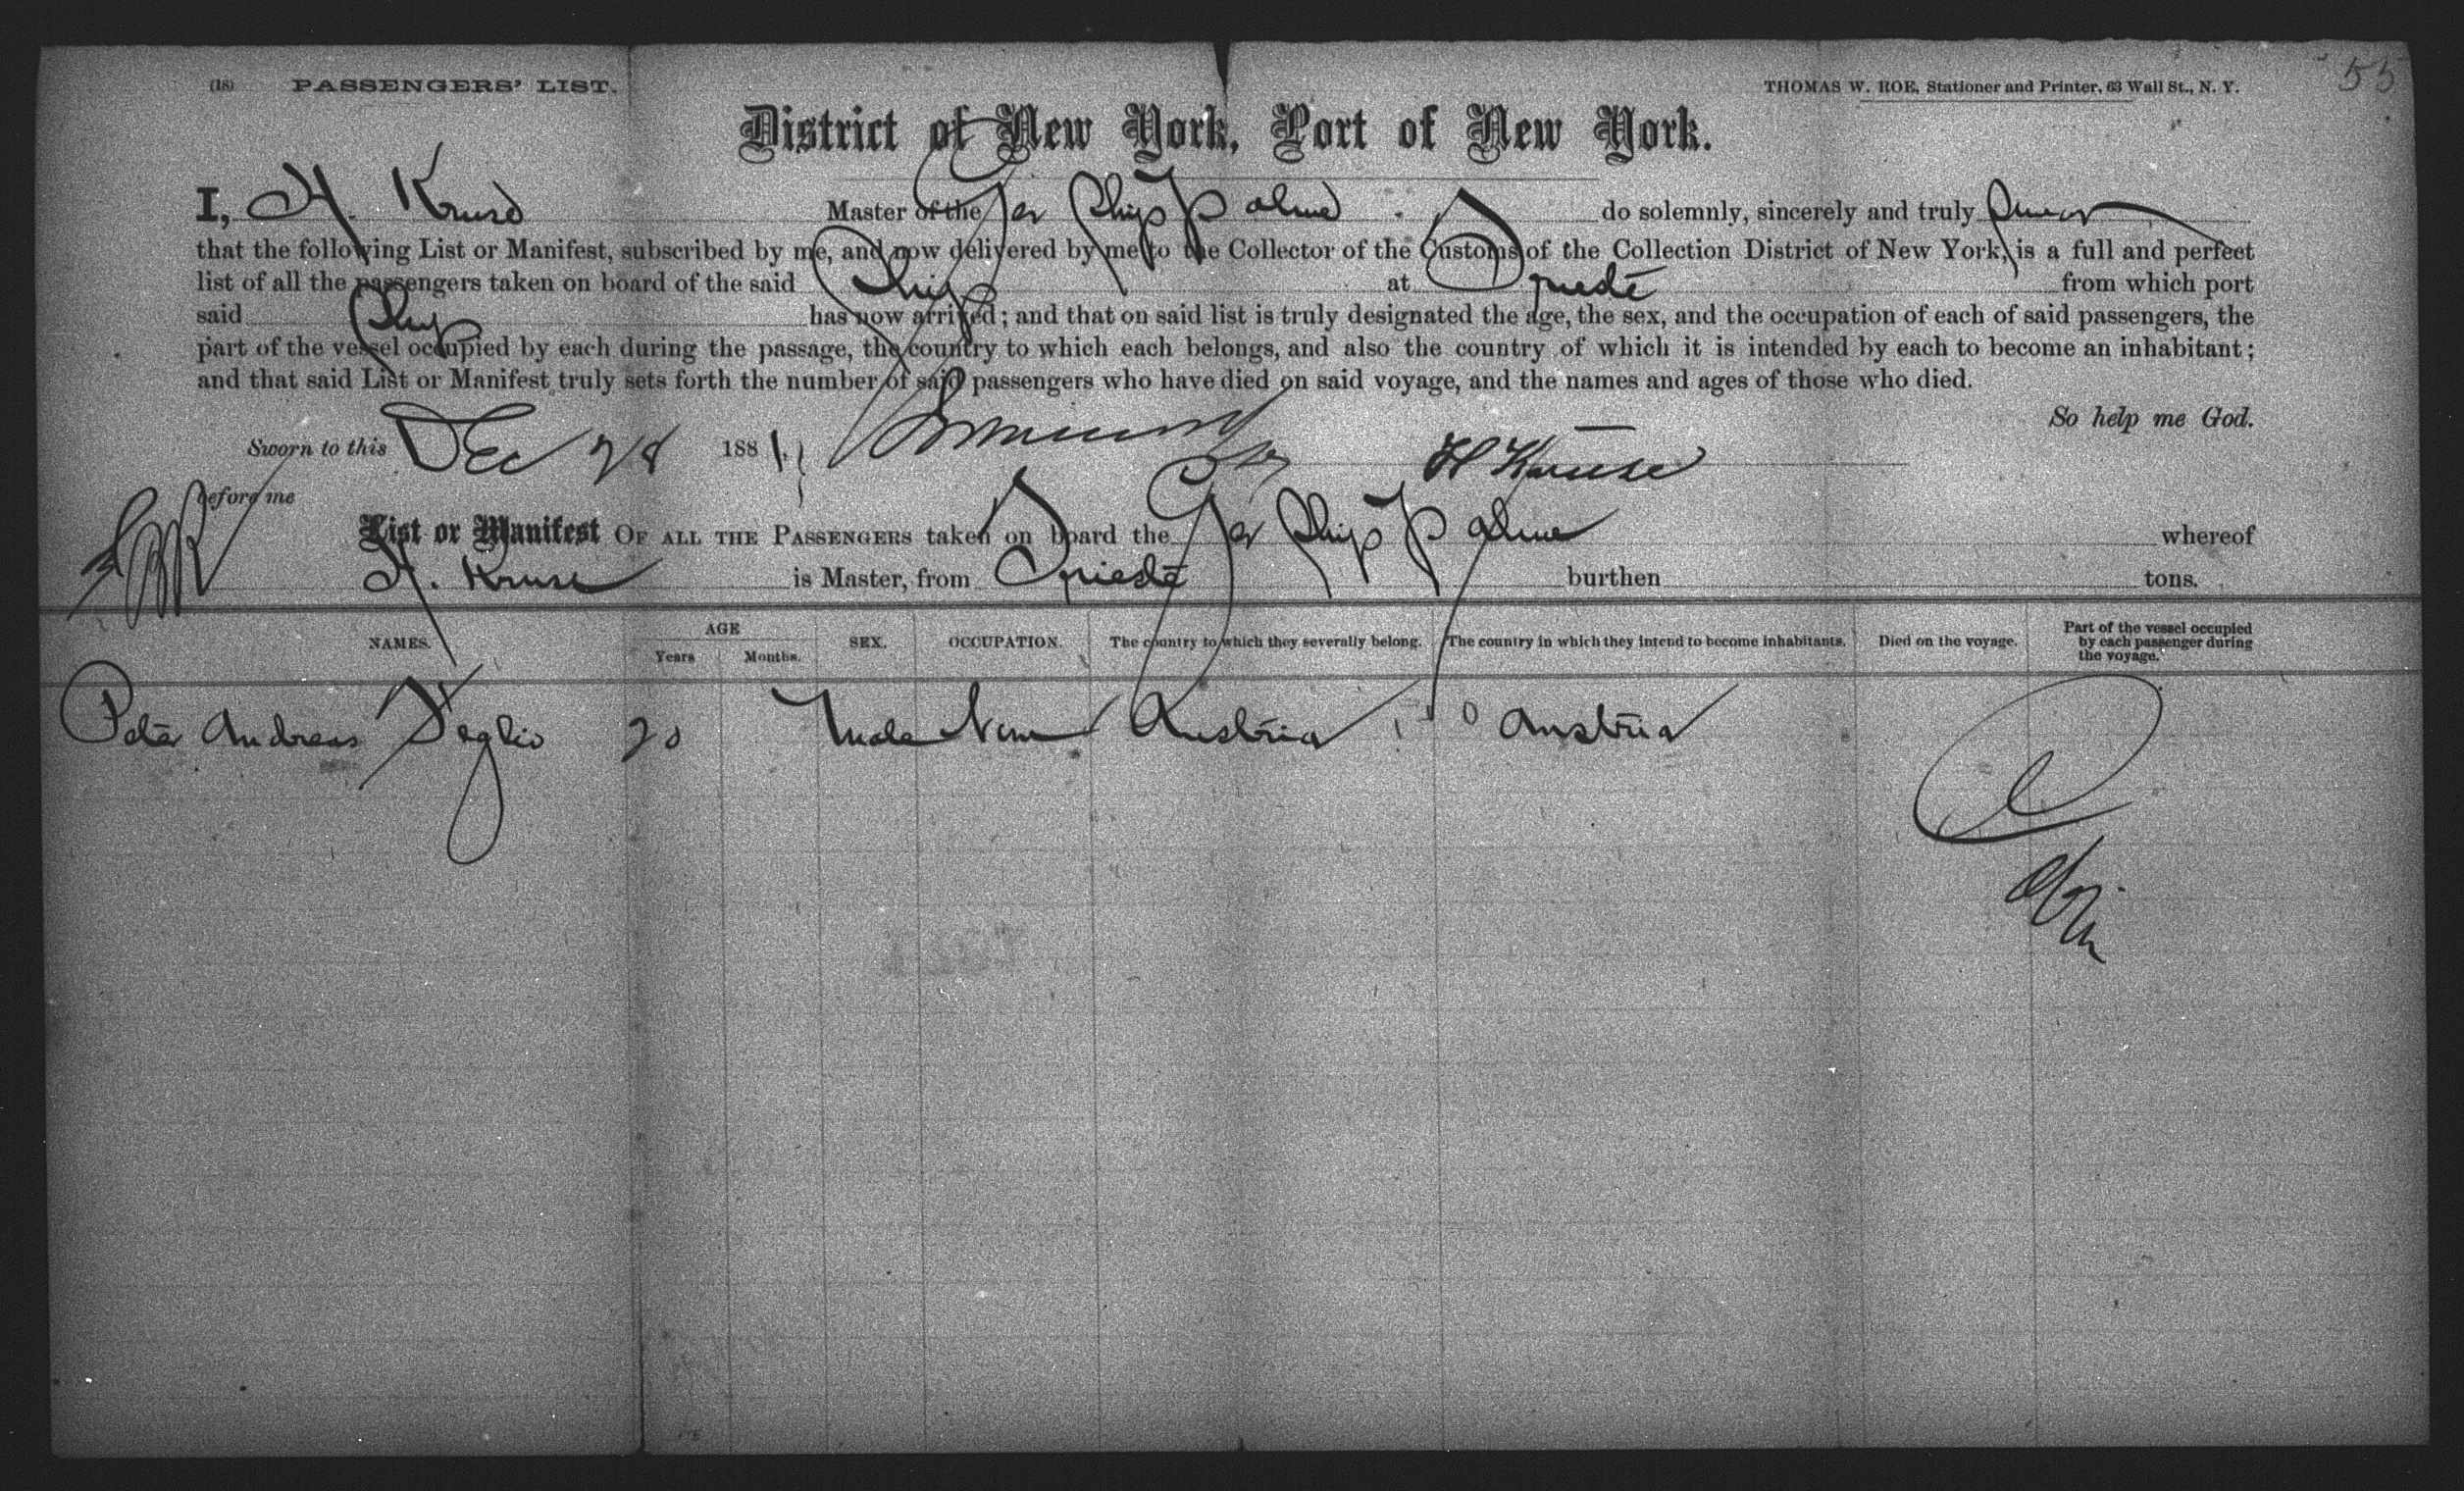 (18) PASSENGERS' LIST. THOMAS W. ROE, Stationer and Printer, 63 Wall St., N. Y. 55
District of New York, Port of New York.
I, H. Kruse Master of the Ger Ship Palme do solemnly, sincerely and truly swear
that the following List or Manifest, subscribed by me, and now delivered by me to the Collector of the Customs of the Collection District of New York, is a full and perfect
list of all the passengers taken on board of the said Ship at Trieste from which port
said Ship has now arrived; and that on said list is truly designated the age, the sex, and the occupation of each of said passengers, the
part of the vessel occupied by each during the passage, the country to which each belongs, and also the country of which it is intended by each to become an inhabitant;
and that said List or Manifest truly sets forth the number of said passengers who have died on said voyage, and the names and ages of those who died.
So help me God.
Sworn to this Dec 28 1881. H Kruse
before me
List or Manifest OF ALL THE PASSENGERS taken on board the Ger Ship Palme whereof
H. Kruse is Master, from Trieste burthen tons.
NAMES. AGE Years Months. SEX. OCCUPATION. The country to which they severally belong. The country in which they intend to become inhabitants. Died on the voyage. Part of the vessel occupied by each passenger during the voyage.
Peter Andreas 20 Male None Austria Austria